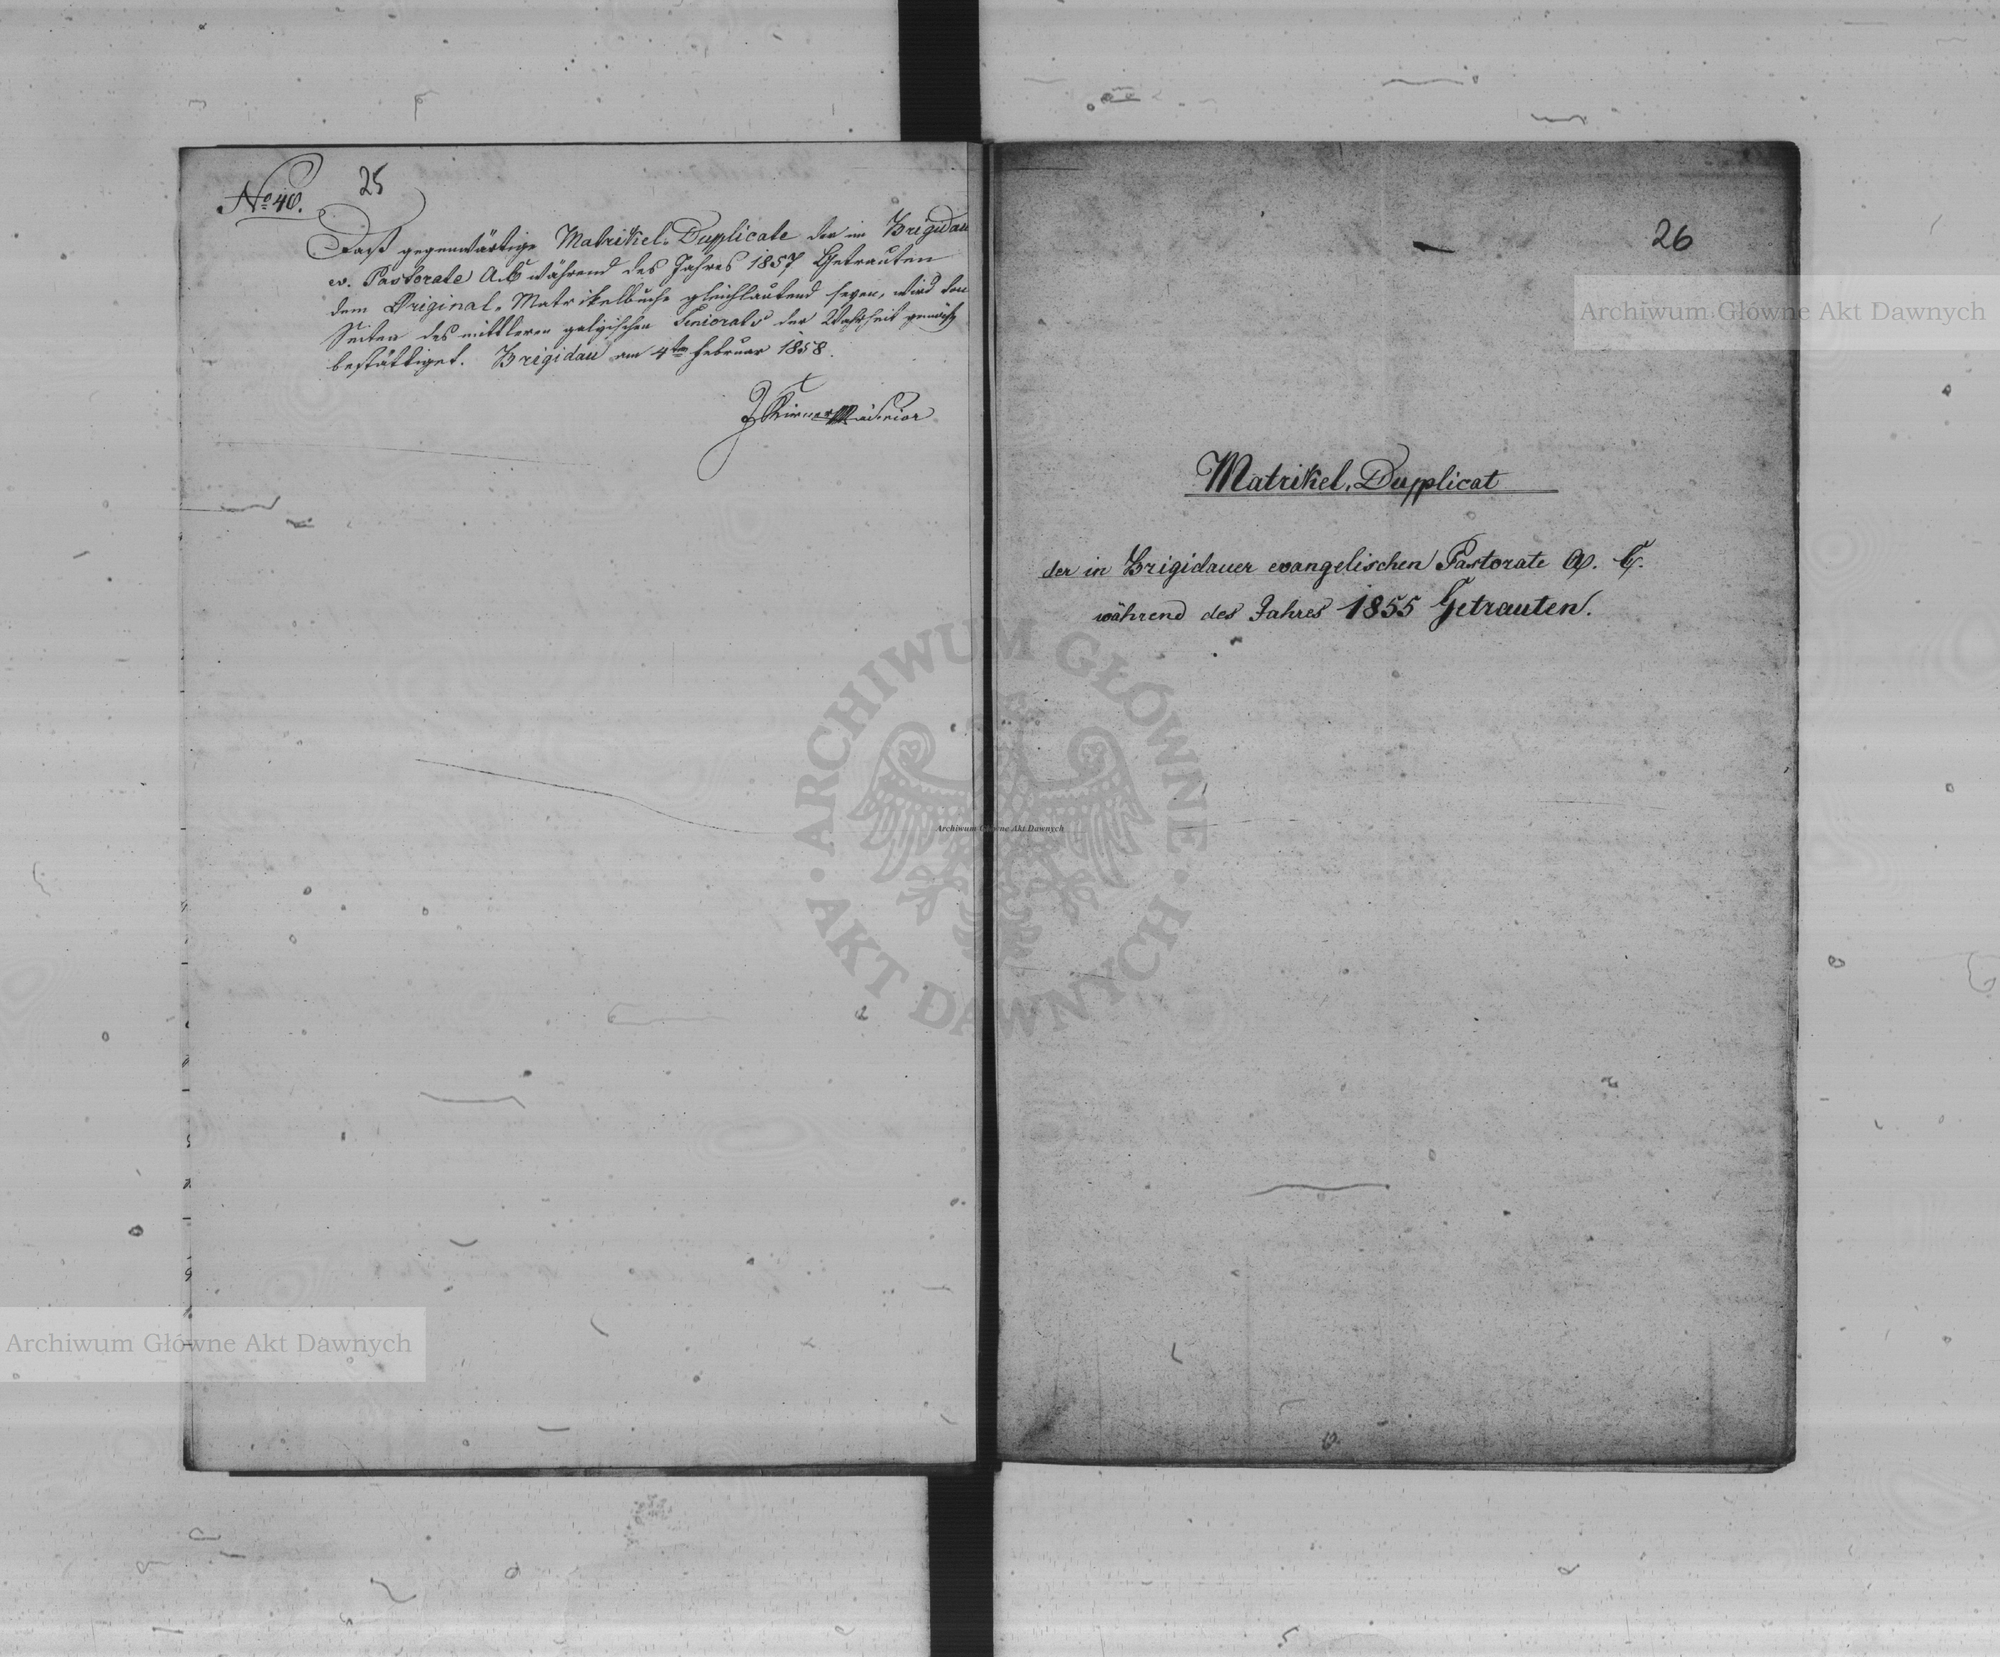 25
No 40.
Daß gegenwärtige Matrikel-Duplicate der im Brigidau
ev. Pastorate A.C. während des Jahres 1857 Getrauten
dem Original-Matrikelbuche gleichlautend seyen, wird von
Seiten des mittleren galizischen Seniorats der Wahrheit gemäß
bestättiget. Brigidau am 4ten Februar 1858.
Senior
26
Matrikel-Duplicat
der in Brigidauer evangelischen Pastorate A. C.
während des Jahres 1855 Getrauten.
Archiwum Główne Akt Dawnych
ARCHIWUM GŁÓWNE · AKT DAWNYCH ·
Archiwum Główne Akt Dawnych
Archiwum Główne Akt Dawnych